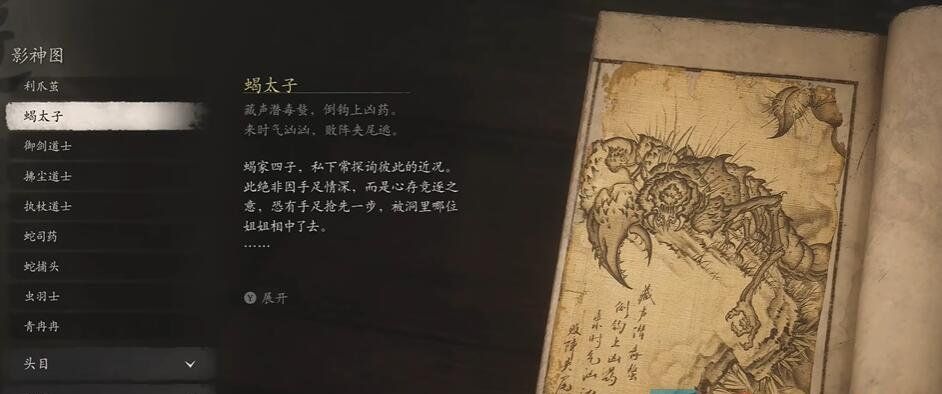 影神图
利爪茧
蝎太子
御剑道士
拂尘道士
执杖道士
蛇司药
蛇捕头
虫羽士
青冉冉
头目
蝎太子
藏声潜毒螯，倒钩上凶药。
来时气汹汹，败阵夹尾逃。
蝎家四子，私下常探询彼此的近况。
此绝非因手足情深，而是心存竞逐之
意，恐有手足抢先一步，被洞里哪位
姐姐相中了去。
……
Y 展开
藏声潜毒螯
倒钩上凶药
来时气汹汹
败阵夹尾